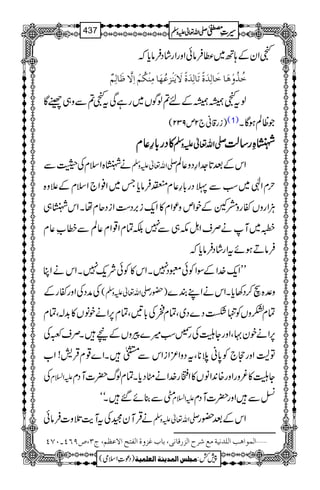 سیرتِ مصطفیٰ صلی اللہ تعالیٰ علیہ وسلم 437
کنجی ان کے ہاتھ میں عطا فرمائی اور ارشاد فرمایا کہ
خُذُوْهَا خَالِدَةً تَالِدَةً لَا يَنْزِعُهَا مِنْكُمْ اِلَّا ظَالِمٌ
لو یہ کنجی ہمیشہ ہمیشہ کے لئے تم لوگوں میں رہے گی یہ کنجی تم سے وہی چھینے گا
جو ظالم ہوگا۔ (1) (زرقانی ج۲ ص۲۳۹)
شہنشاہِ رسالت صلی اللہ تعالیٰ علیہ وسلم کا دربارِ عام
اس کے بعد تاجدارِ دو عالم صلی اللہ تعالیٰ علیہ وسلم نے شہنشاہِ اسلام کی حیثیت سے
حرمِ الٰہی میں سب سے پہلا دربارِ عام منعقد فرمایا جس میں افواجِ اسلام کے علاوہ
ہزاروں کفار و مشرکین کے خواص و عوام کا ایک زبردست ازدحام تھا۔ اس شہنشاہی
خطبہ میں آپ نے صرف اہلِ مکہ ہی سے نہیں بلکہ تمام اقوامِ عالم سے خطابِ عام
فرماتے ہوئے یہ ارشاد فرمایا کہ
’’ایک خدا کے سوا کوئی معبود نہیں۔ اس کا کوئی شریک نہیں۔ اس نے اپنا
وعدہ سچ کر دکھایا۔ اس نے اپنے بندے (حضور صلی اللہ تعالیٰ علیہ وسلم) کی مدد کی اور کفار کے
تمام لشکروں کو تنہا شکست دے دی، تمام فخر کی باتیں، تمام پرانے خونوں کا بدلہ، تمام
پرانے خون بہا، اور جاہلیت کی رسمیں سب میرے پیروں کے نیچے ہیں۔ صرف کعبہ کی
تولیت اور حجاج کو پانی پلانا، یہ دو اعزاز اس سے مستثنیٰ ہیں۔ اے قومِ قریش! اب
جاہلیت کا غرور اور خاندانوں کا افتخار خدا نے مٹا دیا۔ تمام لوگ حضرت آدم علیہ السلام کی
نسل سے ہیں اور حضرت آدم علیہ السلام مٹی سے بنائے گئے ہیں۔‘‘
اس کے بعد حضور صلی اللہ تعالیٰ علیہ وسلم نے قرآن مجید کی یہ آیت تلاوت فرمائی
المواهب اللدنية مع شرح الزرقانی، باب غزوة الفتح الاعظم، ج۳، ص۴۶۹۔۴۷۰
پیش کش: مجلس المدینة العلمیة (دعوتِ اسلامی)